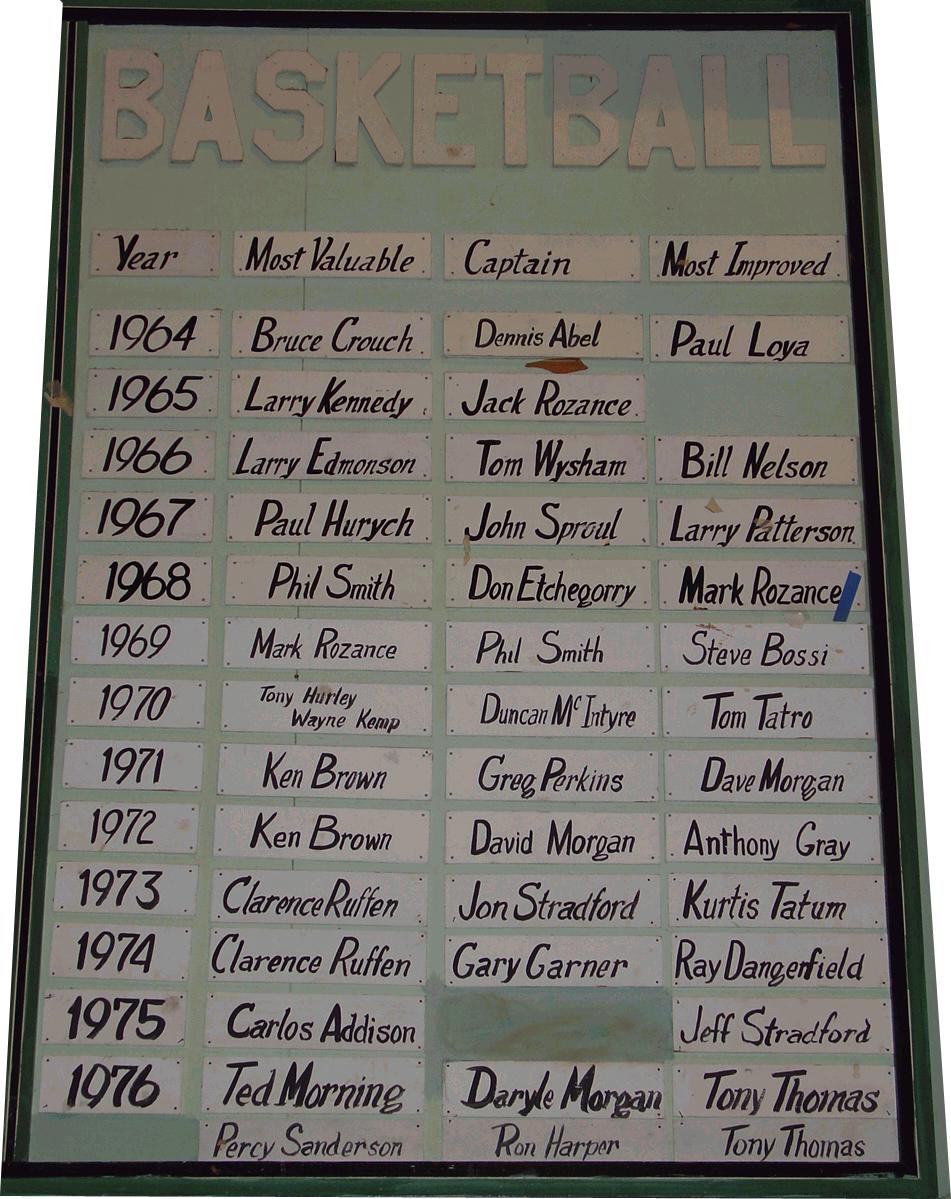 BASKETBALL
Year Most Valuable Captain Most Improved
1964 Bruce Crouch Dennis Abel Paul Loya
1965 Larry Kennedy Jack Rozance
1966 Larry Edmonson Tom Wysham Bill Nelson
1967 Paul Hurych John Sproul Larry Patterson
1968 Phil Smith Don Etchegorry Mark Rozance
1969 Mark Rozance Phil Smith Steve Bossi
1970 Tony Hurley Wayne Kemp Duncan McIntyre Tom Tatro
1971 Ken Brown Greg Perkins Dave Morgan
1972 Ken Brown David Morgan Anthony Gray
1973 Clarence Ruffen Jon Stradford Kurtis Tatum
1974 Clarence Ruffen Gary Garner Ray Dangerfield
1975 Carlos Addison Jeff Stradford
1976 Ted Morning Daryle Morgan Tony Thomas
Percy Sanderson Ron Harper Tony Thomas